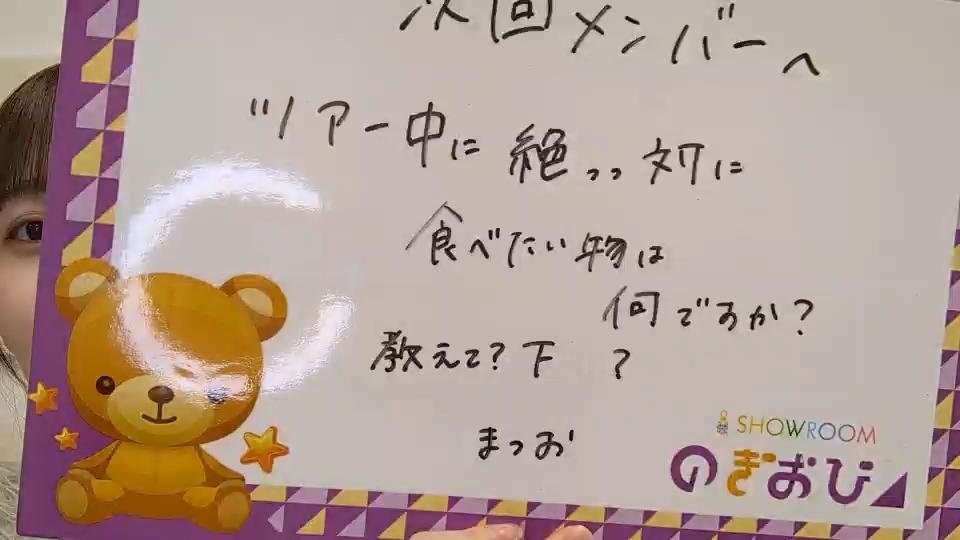 次回メンバーへ
ツアー中に絶っっ対に
食べたい物は
何ですか?
教えて?下 ?
まつお
SHOWROOM
のぎおび